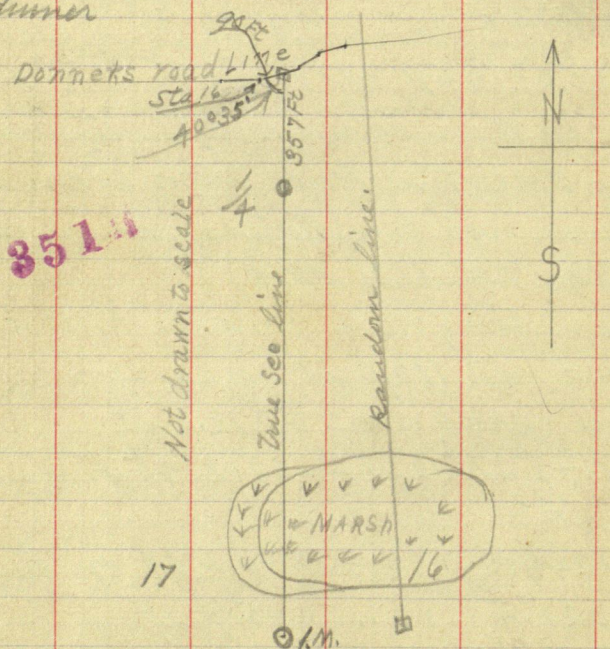 90 Ft
Donners road Line
Sta 16
40° 35'
357 Ft
N
S
1/4
351
Not drawn to scale
True Sec line
Random line.
MARSH
17
16
I.M.